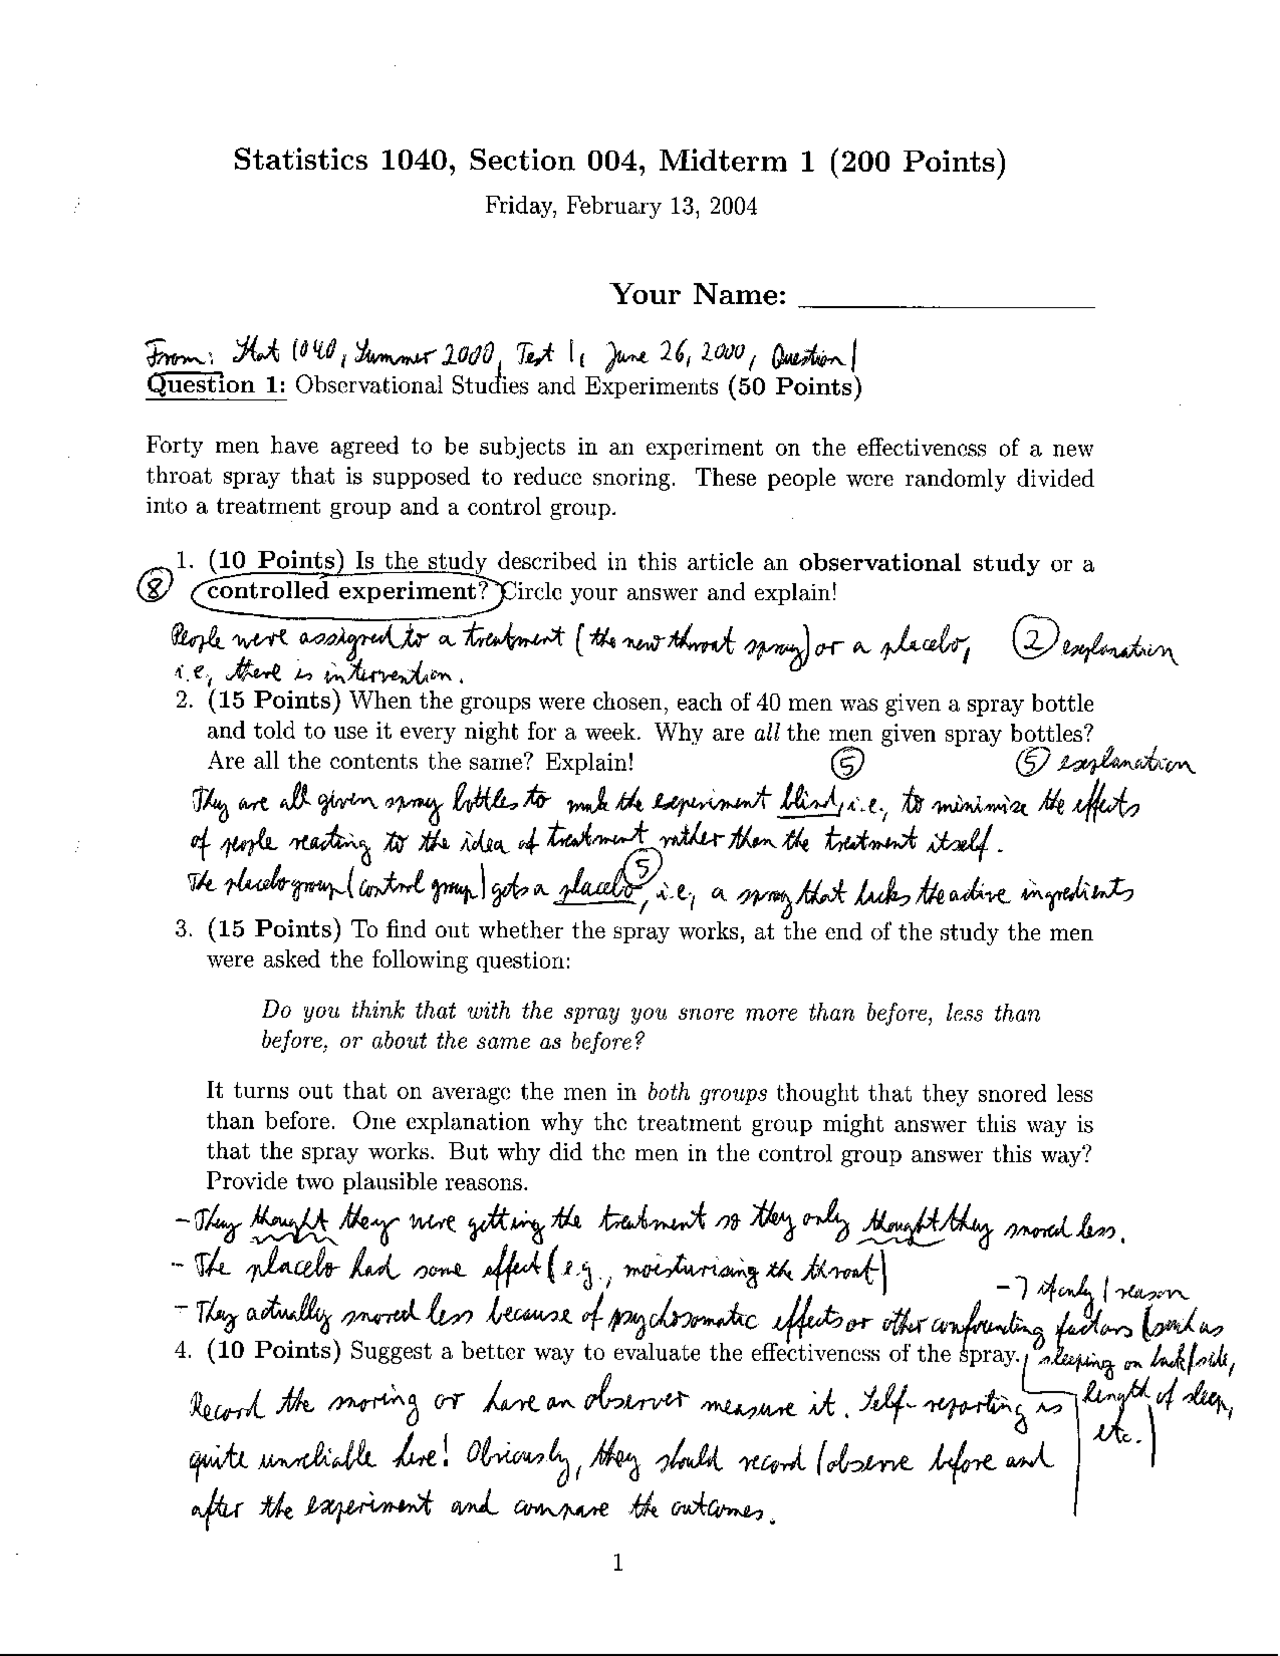 Statistics 1040, Section 004, Midterm 1 (200 Points)
Friday, February 13, 2004
Your Name:
From: Stat 1040, Summer 2000, Test 1, June 26, 2000, Question 1
Question 1: Observational Studies and Experiments (50 Points)
Forty men have agreed to be subjects in an experiment on the effectiveness of a new
throat spray that is supposed to reduce snoring. These people were randomly divided
into a treatment group and a control group.
1. (10 Points) Is the study described in this article an observational study or a
8 controlled experiment? Circle your answer and explain!
People were assigned to a treatment (the new throat spray) or a placebo, 2 explanation
i.e., there is intervention.
2. (15 Points) When the groups were chosen, each of 40 men was given a spray bottle
and told to use it every night for a week. Why are all the men given spray bottles?
Are all the contents the same? Explain! 5 5 explanation
They are all given spray bottles to make the experiment blind, i.e., to minimize the effects
of people reacting to the idea of treatment rather than the treatment itself.
The placebo group (control group) gets a placebo, 5 i.e., a spray that lacks the active ingredients
3. (15 Points) To find out whether the spray works, at the end of the study the men
were asked the following question:
Do you think that with the spray you snore more than before, less than
before, or about the same as before?
It turns out that on average the men in both groups thought that they snored less
than before. One explanation why the treatment group might answer this way is
that the spray works. But why did the men in the control group answer this way?
Provide two plausible reasons.
- They thought they were getting the treatment so they only thought they snored less.
- The placebo had some effect (e.g., moisturising the throat)
-7 if only 1 reason
- They actually snored less because of psychosomatic effects or other confounding factors (such as
4. (10 Points) Suggest a better way to evaluate the effectiveness of the spray. sleeping on back/side,
Record the snoring or have an observer measure it. Self-reporting is length of sleep,
etc.)
quite unreliable here! Obviously, they should record/observe before and
after the experiment and compare the outcomes.
1